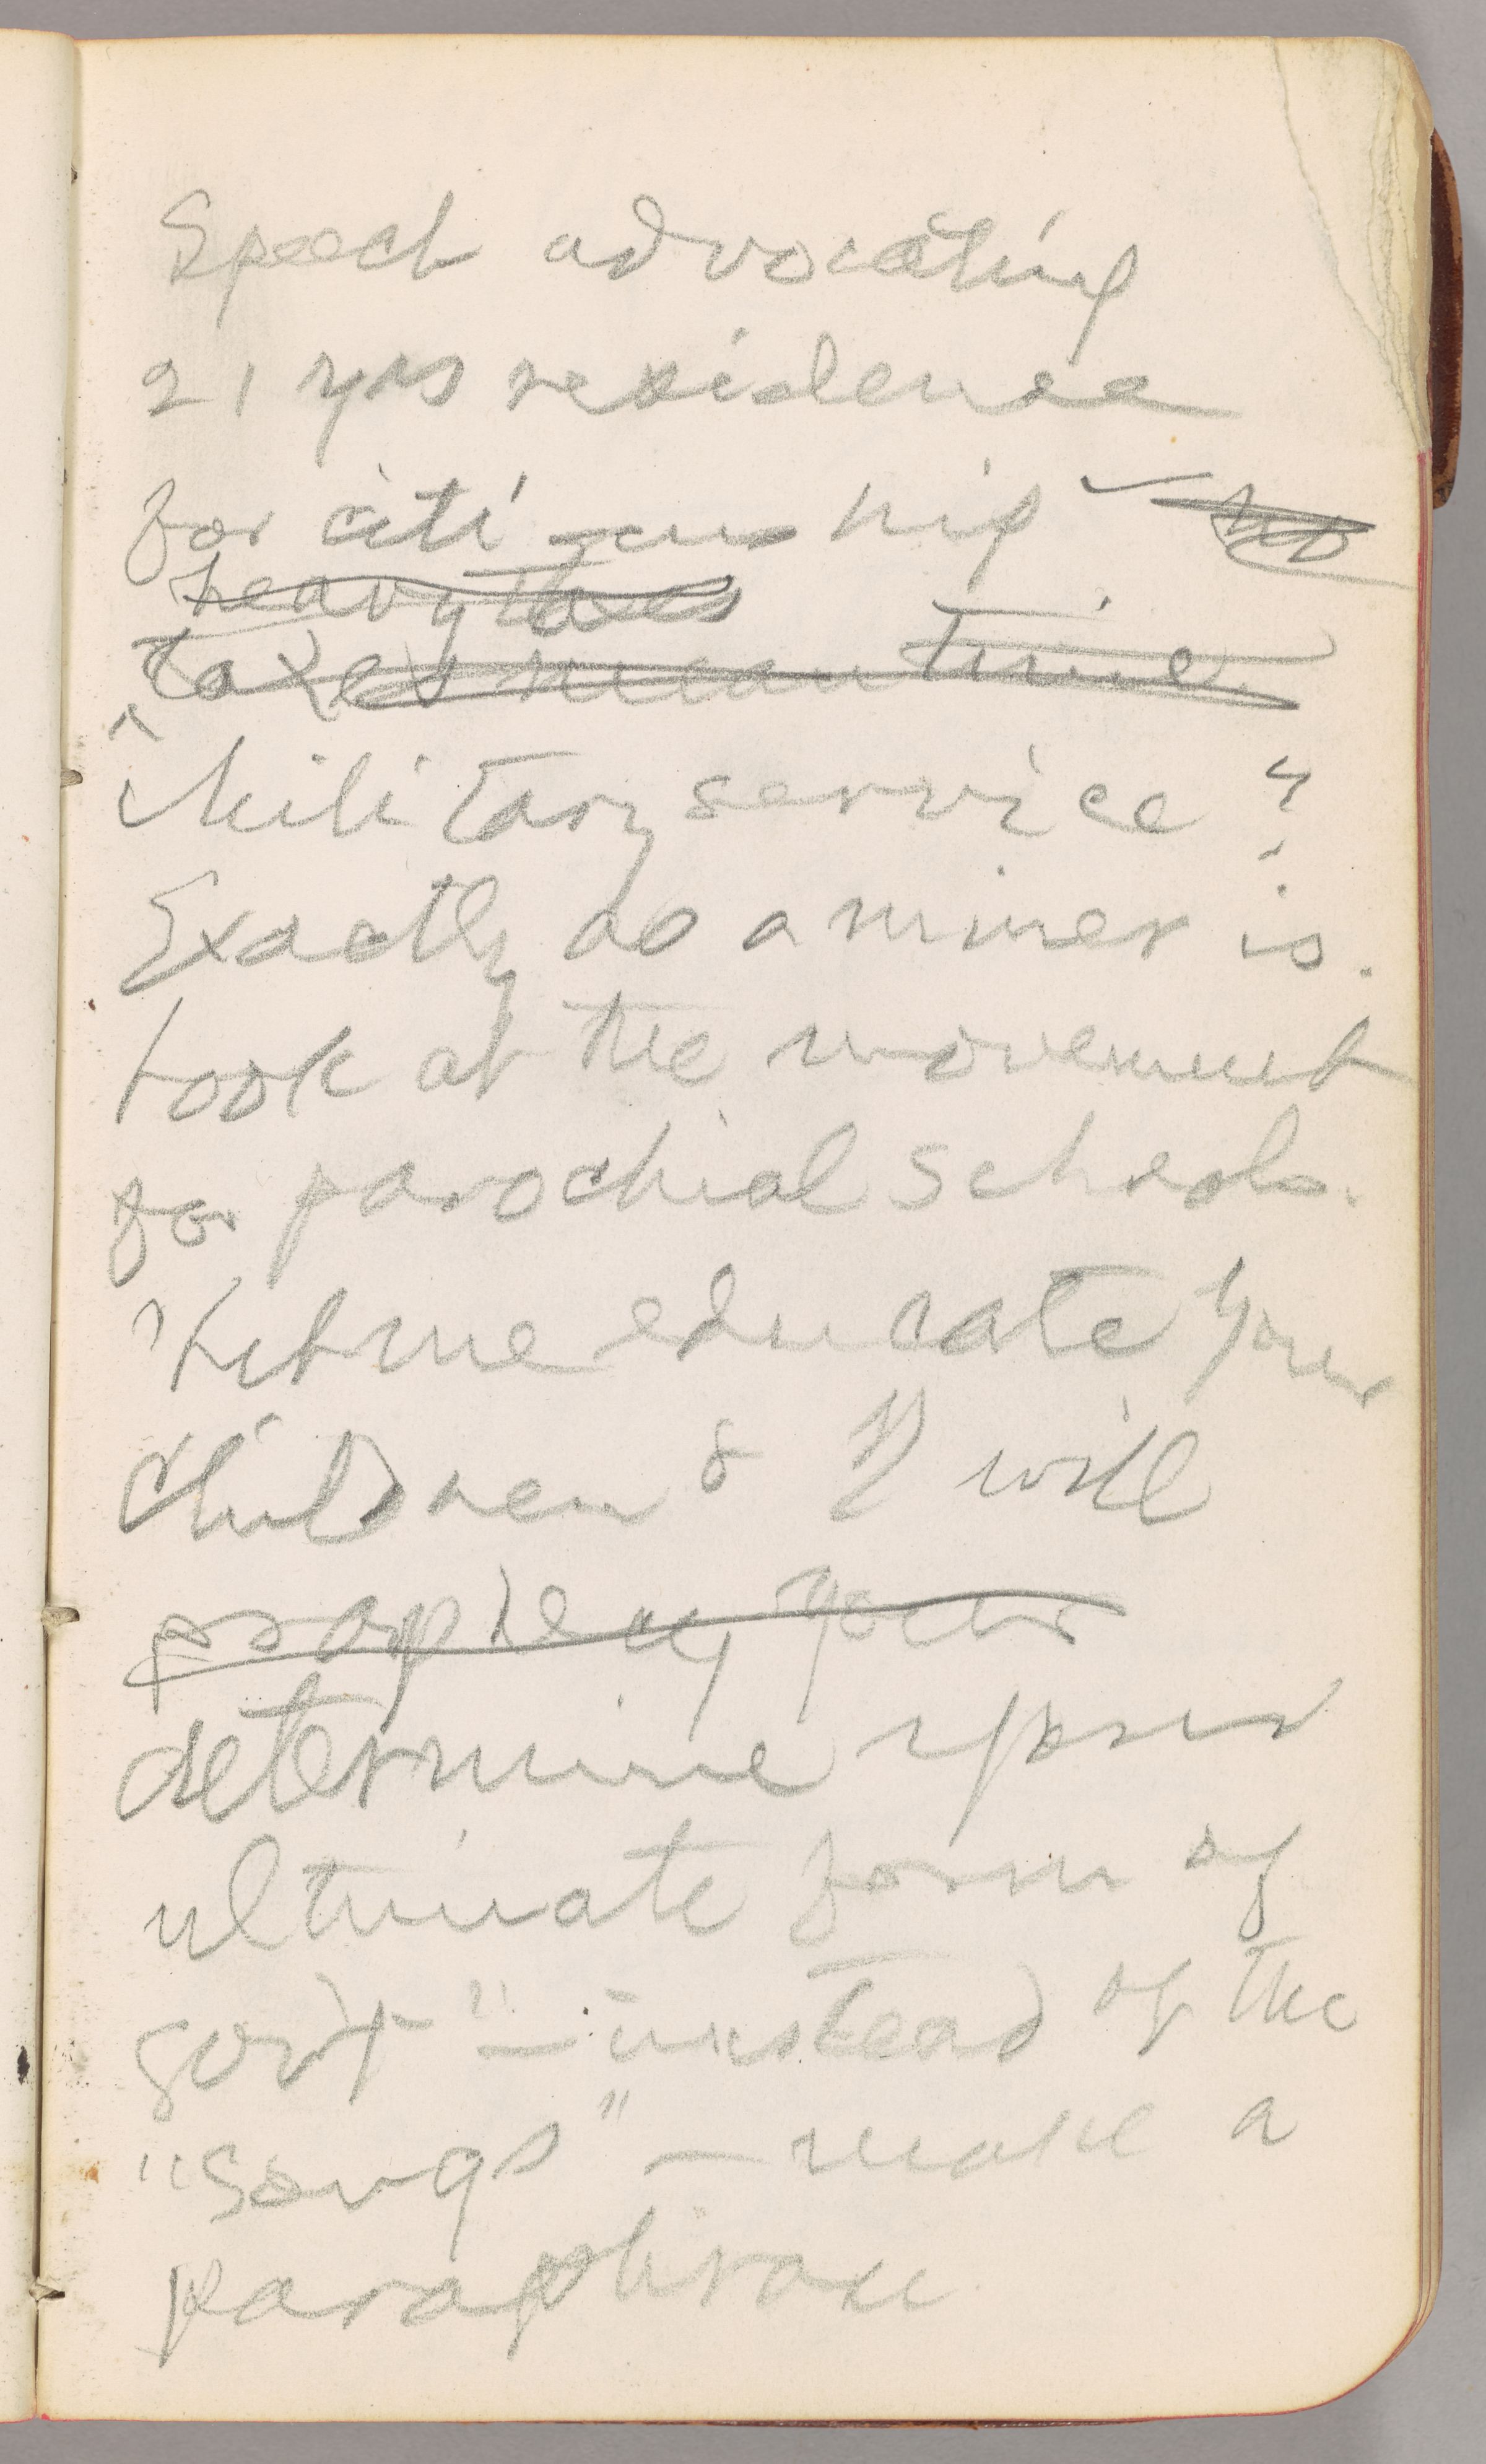 Speech advocating
21 yrs residence
for citizenship — no
heavy taxes
taxes meantime.
Military service?
Exactly as a minor is.
Look at the movement
for parochial schools.
"Let me educate your
children & I will
prophecy your
determine your
ultimate form of
gov't" — instead of the
"songs" — make a
paraphrase